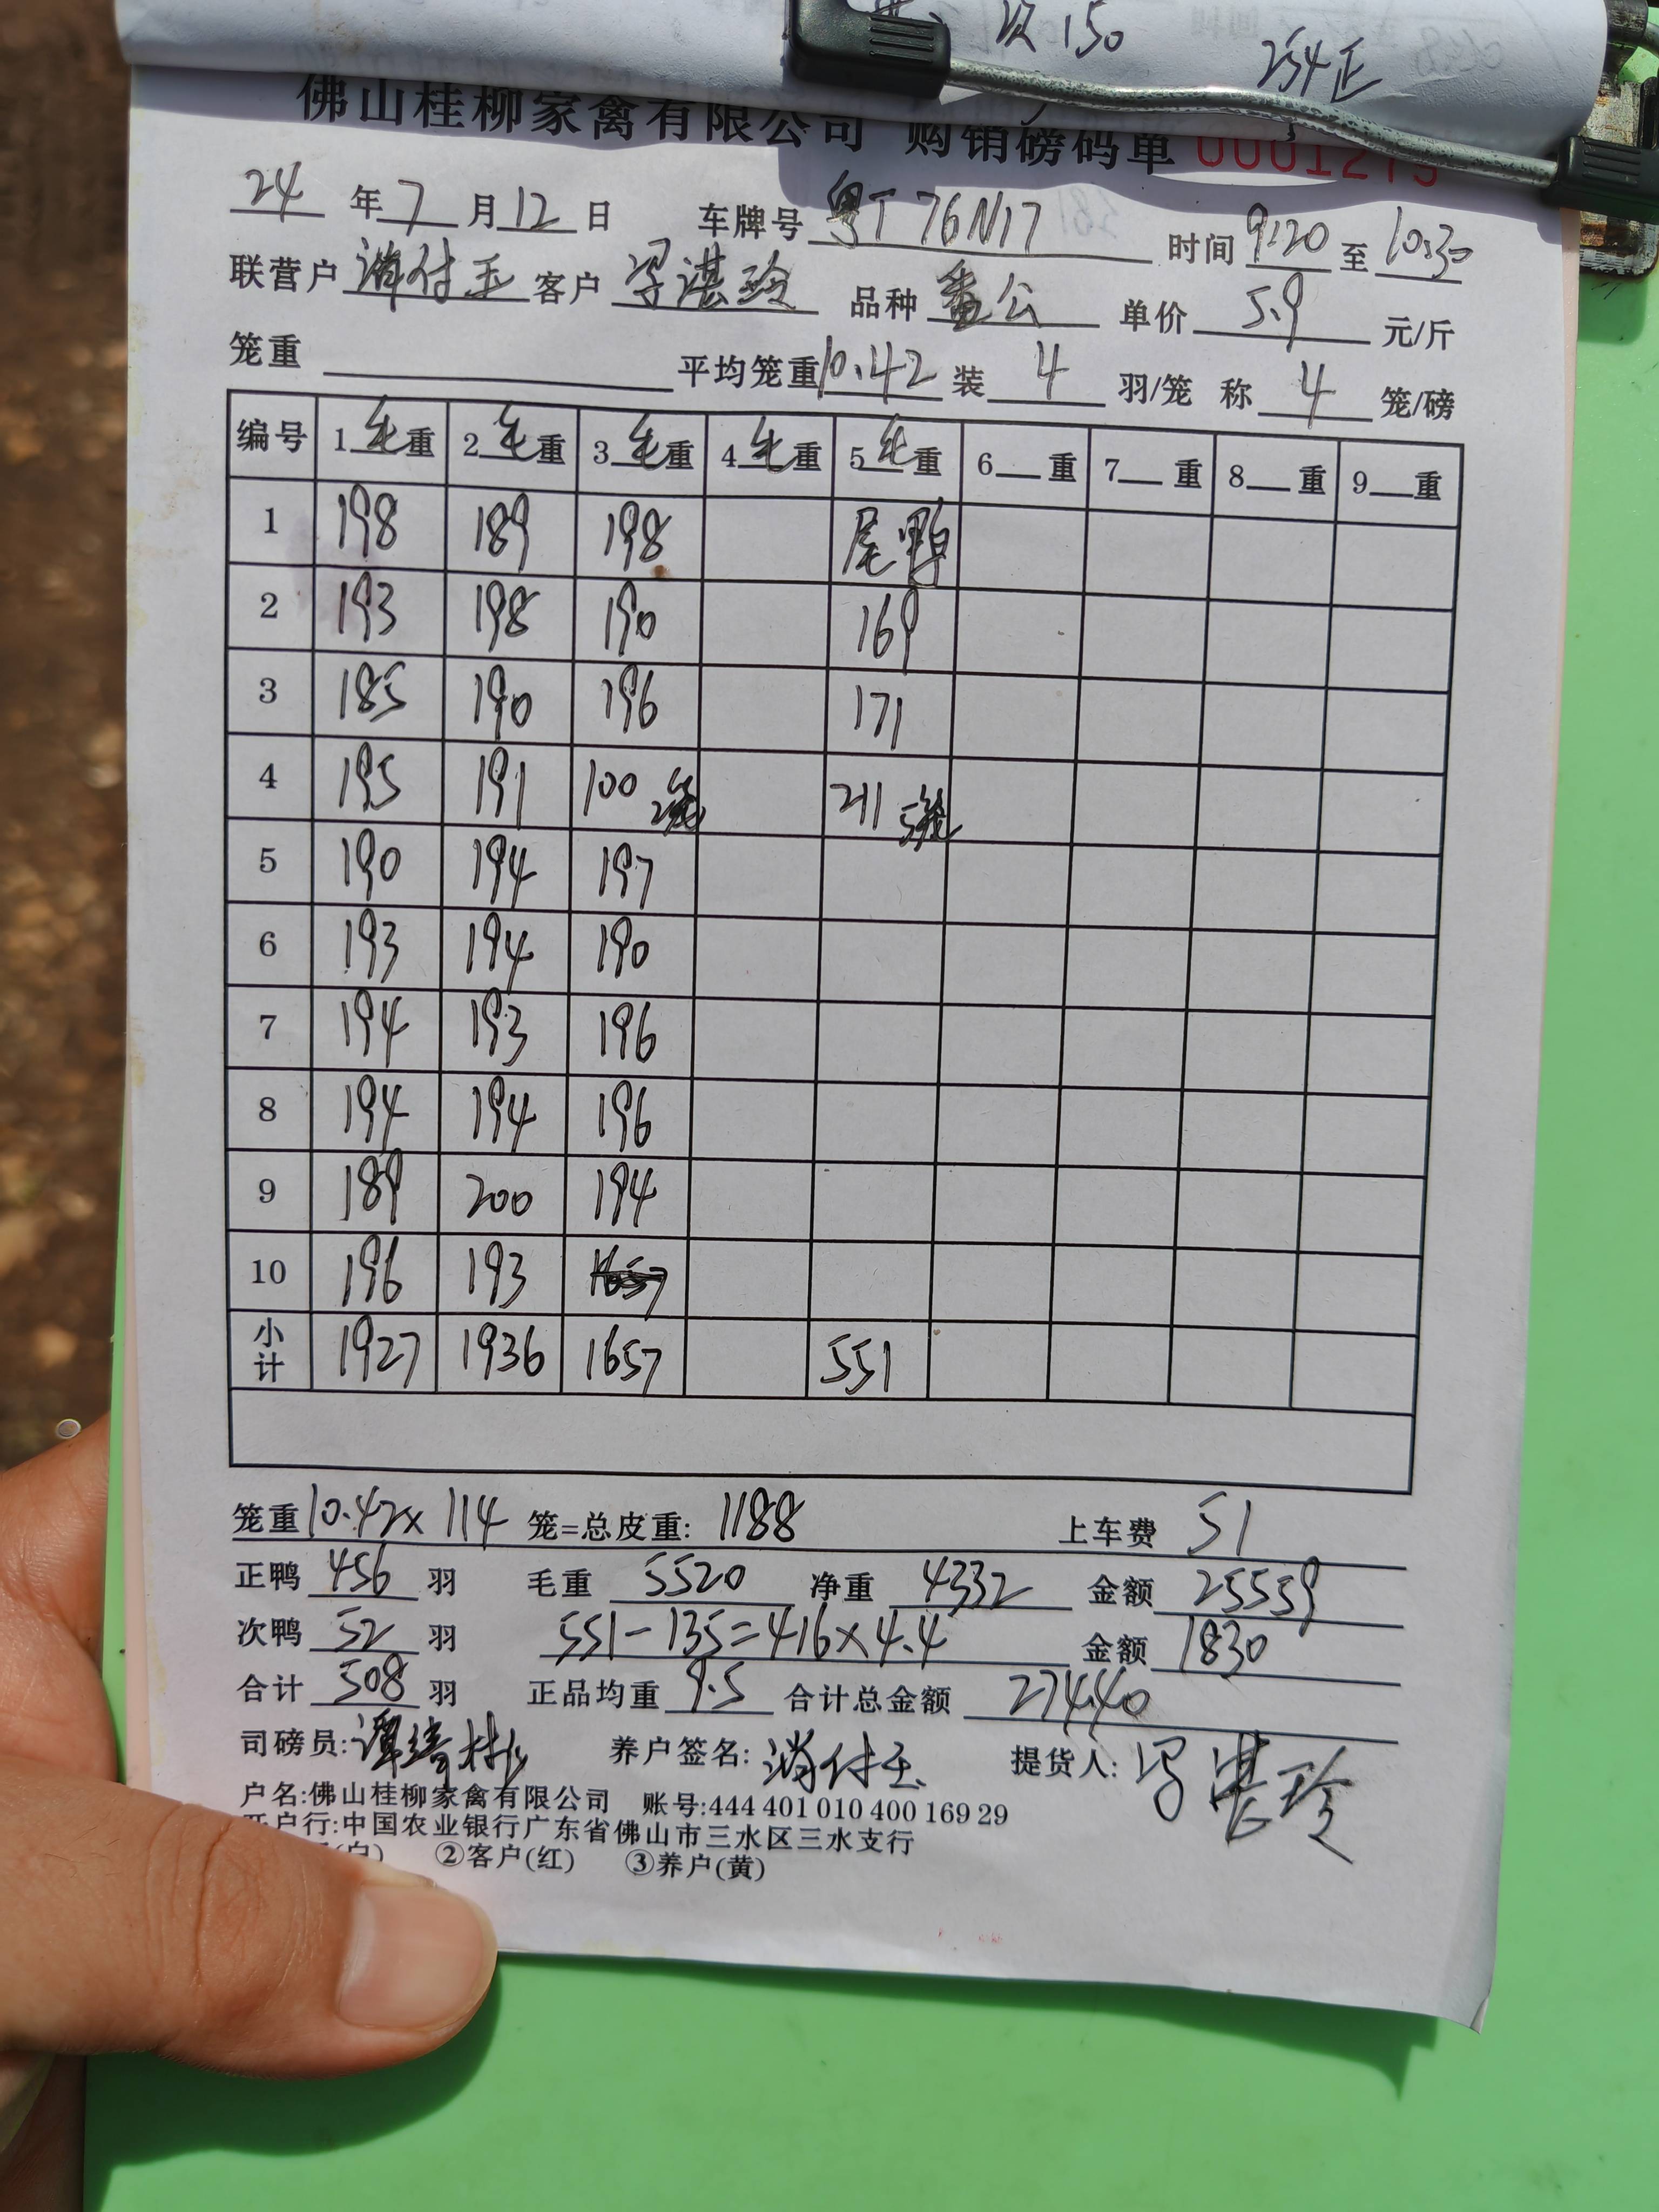 次150
254正
佛山桂柳家禽有限公司 购销磅码单 0001275
24 年 7 月 12 日 车牌号 粤T 76N17 时间 9:20 至 10:30
联营户 付玉 客户 湛玲 品种 番公 单价 5.9 元/斤
笼重 平均笼重 10.42 装 4 羽/笼 称 4 笼/磅
编号 1 毛重 2 毛重 3 毛重 4 毛重 5 毛重 6 重 7 重 8 重 9 重
1 198 189 198 尾鸭
2 193 198 190 169
3 185 190 196 171
4 195 191 100 2笼 211 5笼
5 190 194 197
6 193 194 190
7 194 193 196
8 194 194 196
9 189 200 194
10 196 193 1657
小计 1927 1936 1657 551
笼重 10.42× 114 笼=总皮重: 1188 上车费 51
正鸭 456 羽 毛重 5520 净重 4332 金额 25559
次鸭 52 羽 551-135=416×4.4 金额 1830
合计 508 羽 正品均重 9.5 合计总金额 27440
司磅员: 谭 彬 养户签名: 付玉 提货人: 湛玲
户名:佛山桂柳家禽有限公司 账号:444 401 010 400 169 29
开户行:中国农业银行广东省佛山市三水区三水支行
(白) ②客户(红) ③养户(黄)